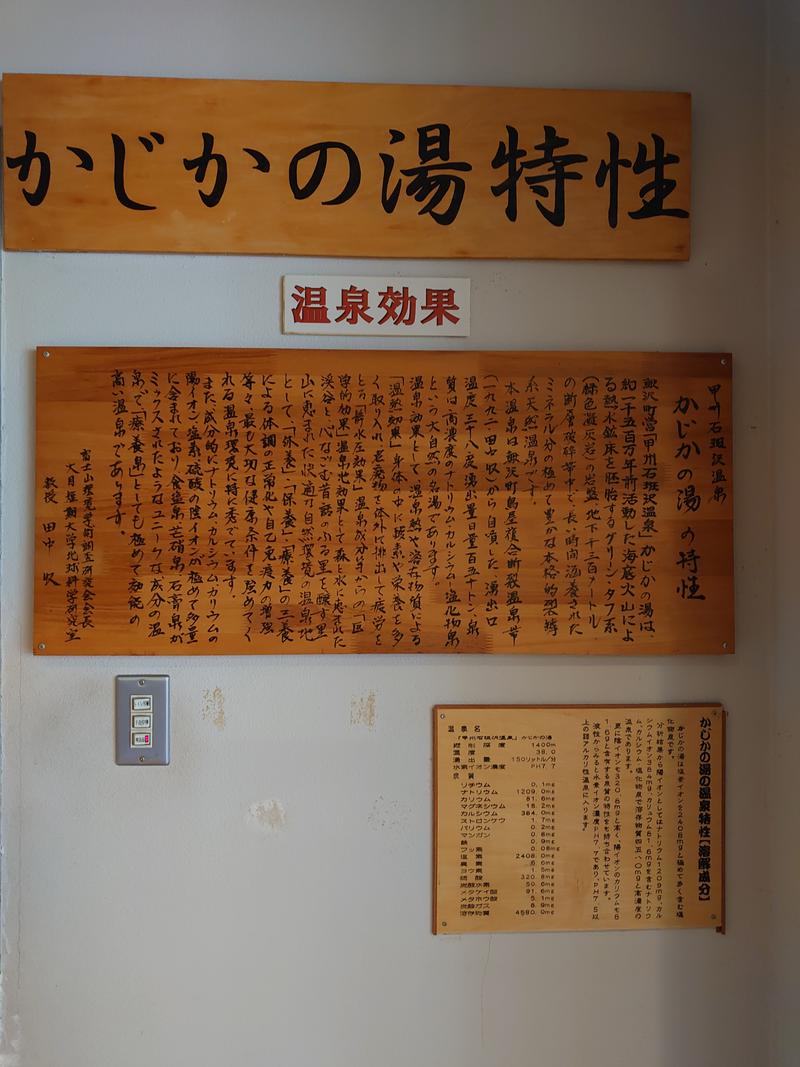 かじかの湯特性
温泉効果
甲州石班沢温泉
かじかの湯の特性
鰍沢町営「甲州石班沢温泉」かじかの湯は、
約一千五百万年前活動した海底火山によ
る熱水鉱床を胚胎するグリーン・タフ系
(緑色凝灰岩)の岩盤、地下千三百メートル
の断層破砕帯中で、長い時間涵養された
ミネラル分の極めて豊かな本格的裂罅
系天然温泉です。
本温泉は鰍沢町鳥屋複合断裂温泉帯
(一九九二・田中収)から自噴した、湧出口
温度三十八度、湧出量日量百五十トン、泉
質は「高濃度のナトリウム・カルシウム・塩化物泉」
という大自然の名湯であります。
温泉効果として、温泉熱や溶存物質による
「温熱効果」身体の中に酸素や栄養を多
く取り入れ、老廃物を体外に排出して疲労を
とる「静水圧効果」温泉成分からの「医
学的効果」温泉地効果として森と水に恵まれた
渓谷と心なごむ昔話のふる里を醸す里
山に恵まれた快適な自然環境の温泉地
として、「休養」・「保養」・「療養」の三養
による体調の正常化や自己免疫力の増強
等々、最も大切な健康条件を強めてく
れる温泉環境に特に秀でています。
また、成分的にナトリウム・カルシウム・カリウムの
陽イオン、塩素・硫酸の陰イオンが極めて多量
に含まれており、食塩泉、芒硝泉、石膏泉が
ミックスされたようなユニークな成分の温
泉で「療養泉」としても極めて効能の
高い温泉であります。
富士山環境学術調査研究会会長
大月短期大学地球科学研究室
教授 田中 収
かじかの湯の温泉特性【溶解成分】
かじかの湯は塩素イオンを2408mgと極めて多く含む塩
化物泉です。
分析結果から陽イオンとしてはナトリウム1209mg、カル
シウムイオン384mg、カリュウム81.6mgを含むナトリウ
ム、カルシウム−塩化物泉で溶存物質四五八〇mgと高濃度の
温泉であります。
更に陰イオンも320.8mgと高く、陽イオンのカリウムも8
1.6gと含有する泉質の特性をも持ち合わせています。
液性からみると水素イオン濃度PH7.7であり、PH7.5以
上の弱アルカリ性温泉に入ります。
温泉名
「甲州石班沢温泉」かじかの湯
掘削深度 1400m
温度 38.0
湧出量 150リットル/分
水素イオン濃度 PH7.7
泉質
リチウム 0.1mg
ナトリウム 1209.0mg
カリウム 81.6mg
マグネシウム 18.2mg
カルシウム 384.0mg
ストロンチウ 1.7mg
バリウム 0.2mg
マンガン 0.8mg
鉄 0.9mg
フッ素 0.08mg
塩素 2408.0mg
臭素 .6mg
ヨウ素 1.5mg
硫酸 320.8mg
炭酸水素 50.6mg
メタケイ酸 91.6mg
メタホウ酸 5.1mg
炭酸ガス 6.9mg
溶存物質 4580.0mg